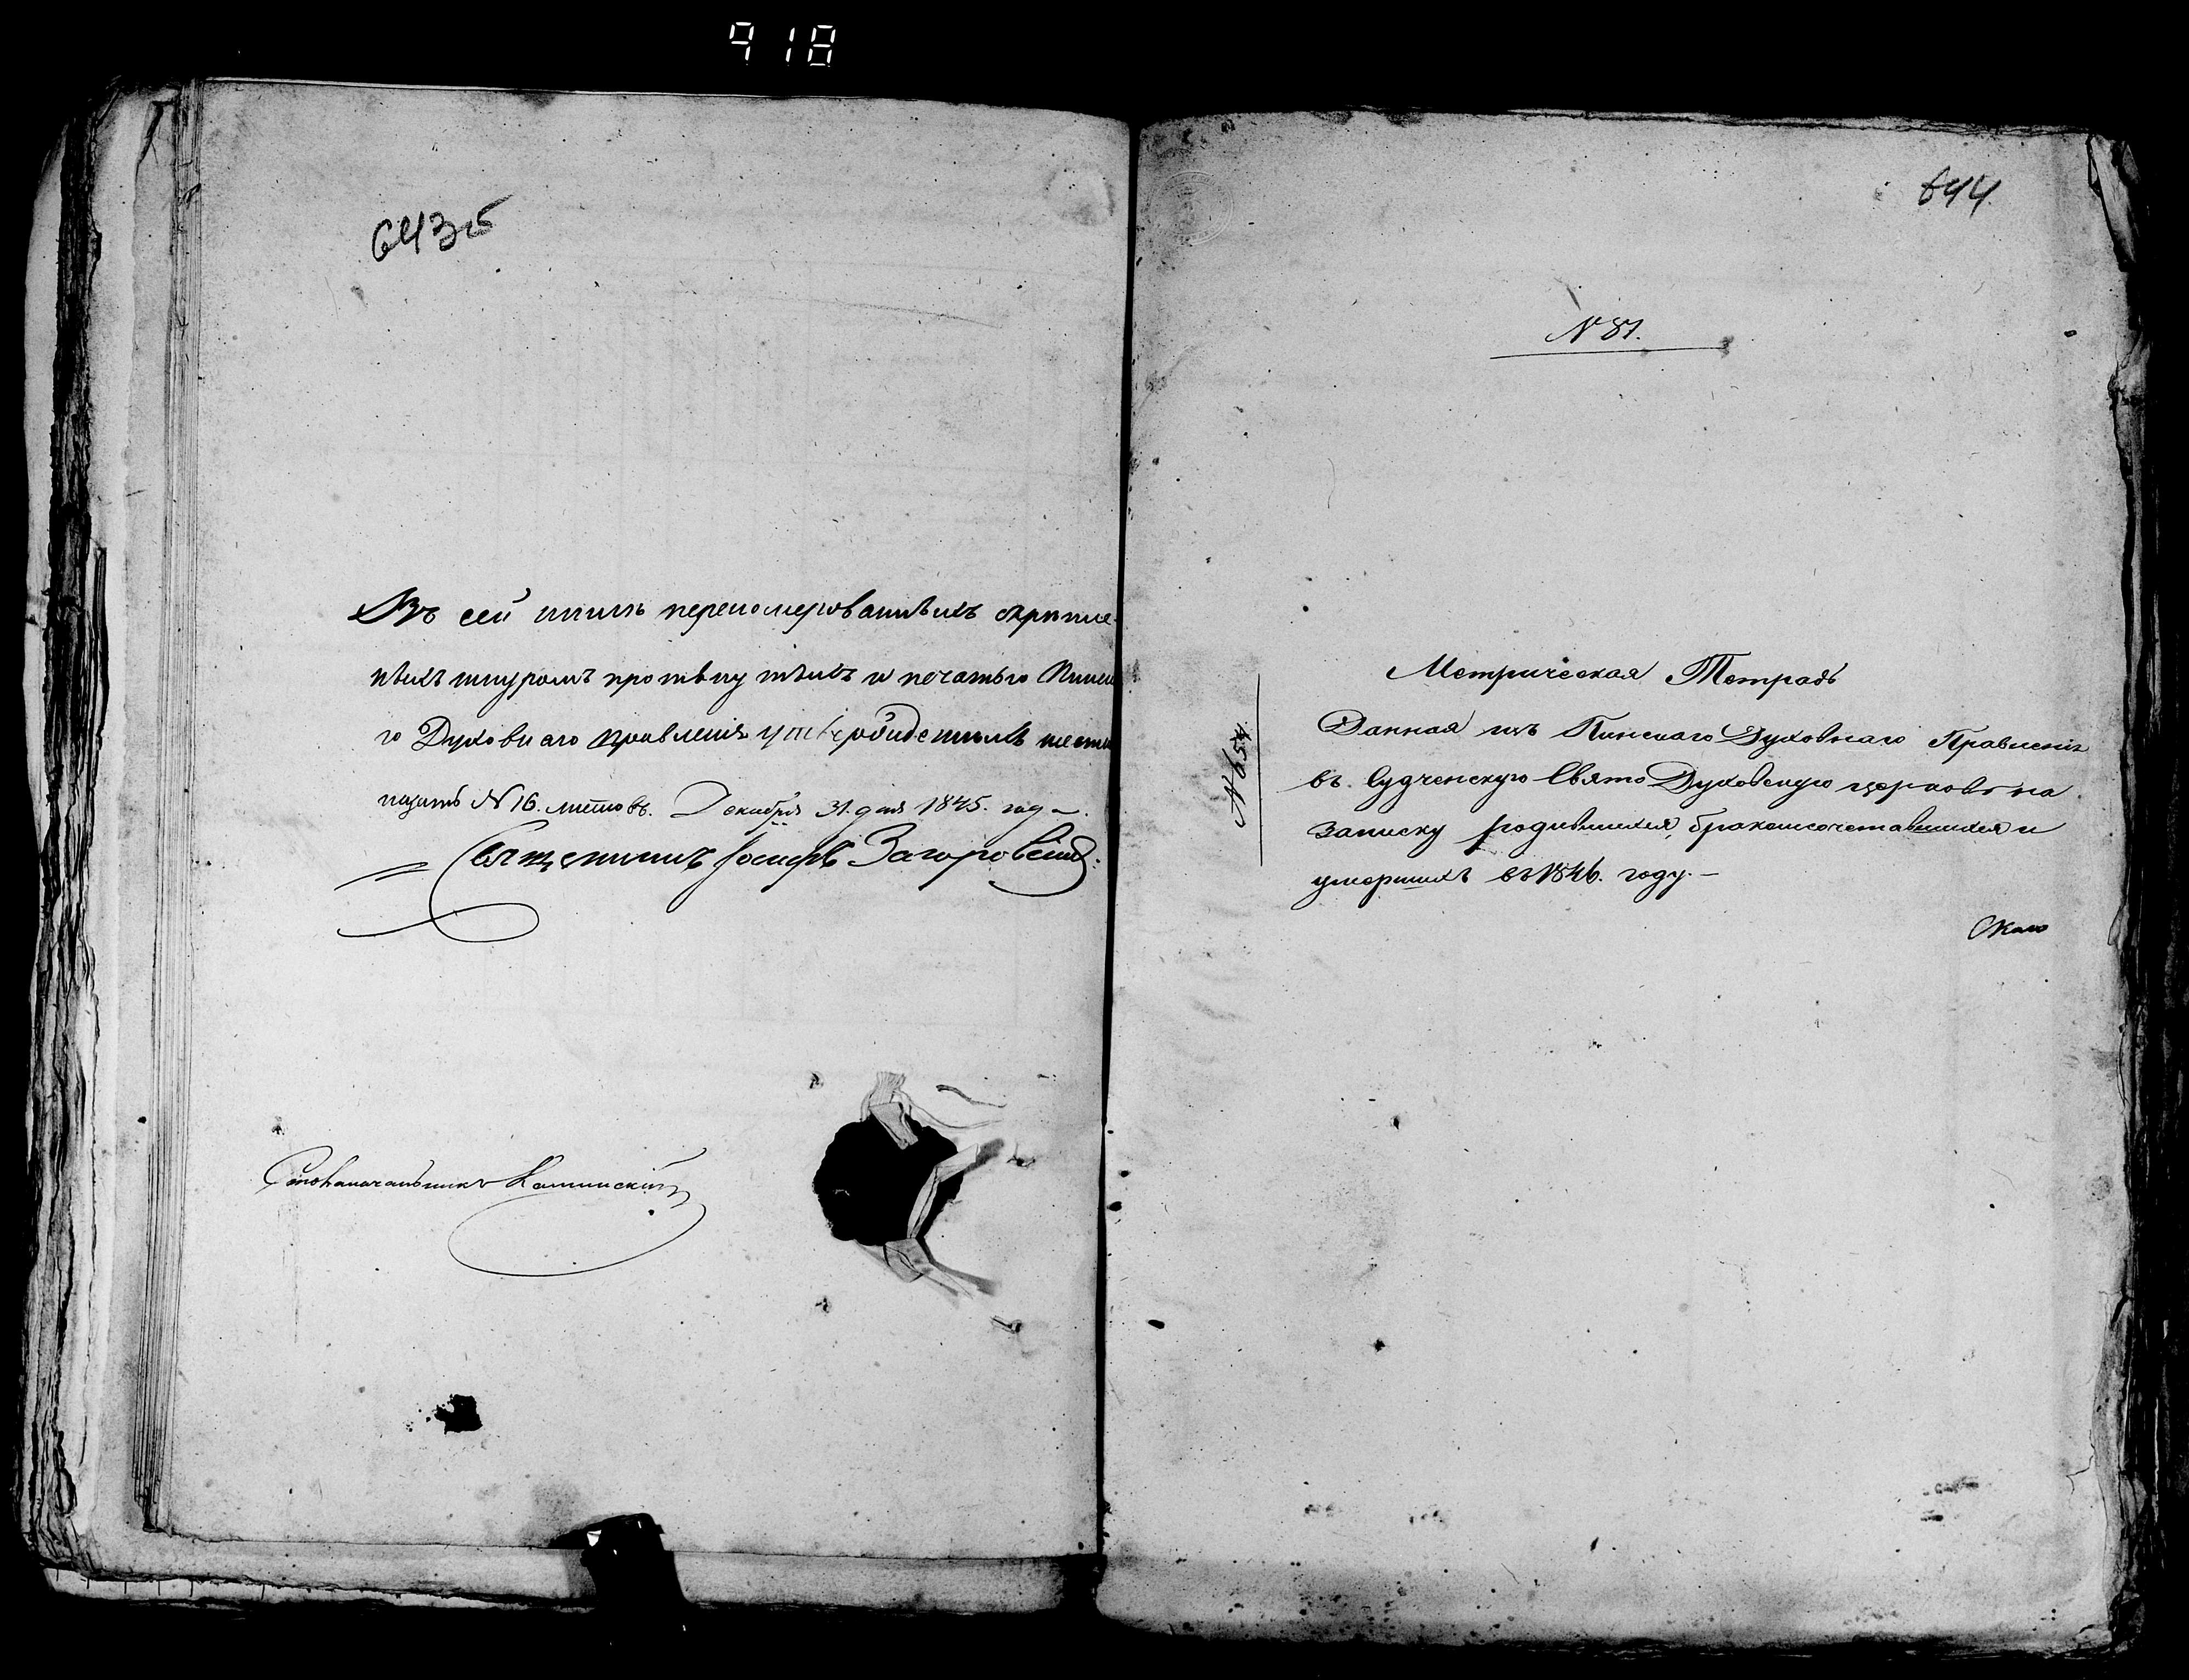 918
643об
Въ сей книгѣ переномерованныхъ скрепле-
ныхъ шнуромъ протянутыхъ и печатью Пинска-
го Духовнаго правленія утвержденныхъ шестн
надцать N 16. листовъ. Декабря 31. дня 1845. года.
Священникъ Іосифъ Загоровскій
Столоначальникъ Калинскій
644
N 81.
N 654.
Метрическая Тетрадь
Данная изъ Пинскаго Духовнаго Правленія
въ Судченскую Свято Духовскую церковь на
записку родившихся, бракомсочетавшихся и
умершихъ въ 1846. году.—